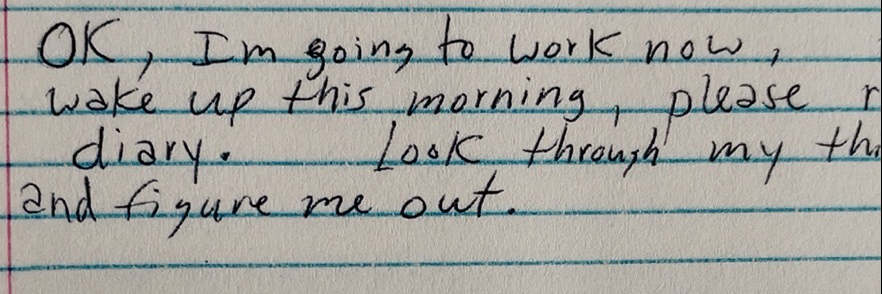 OK, Im going to work now,
wake up this morning, please r
diary. Look through my th
and figure me out.